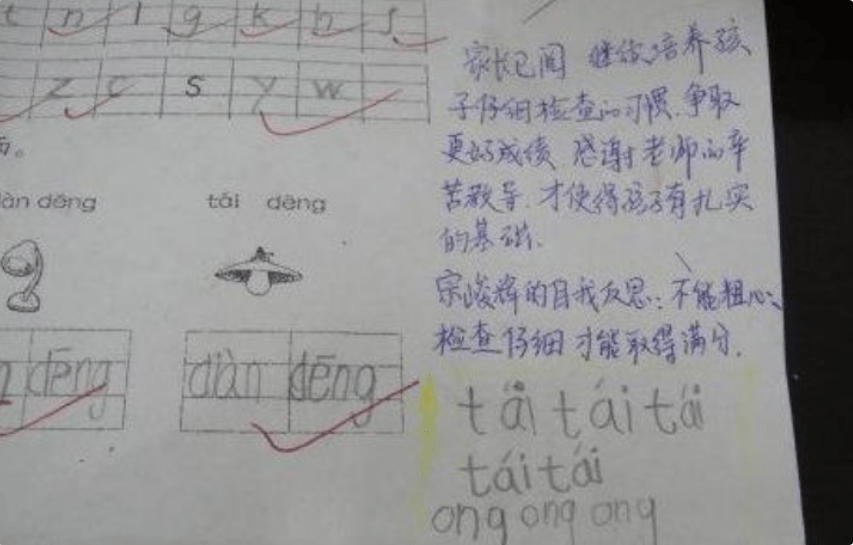 t n l g k h j
z c s y w
面。
àn dēng tái dēng
dēng diàn dēng
家长已阅 继续培养孩
子仔细检查的习惯.争取
更好成绩 感谢老师的辛
苦教导.才使得孩子有扎实
的基础.
宗峻辉的自我反思:不能粗心,
检查仔细才能取得满分.
tái tái tái
tái tái
ong ong ong